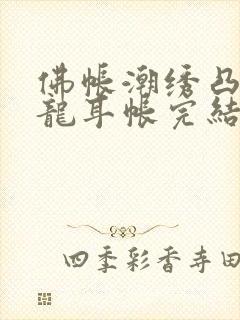 佛帐潮绣凸
龍耳帐完結
四季彩香寺田